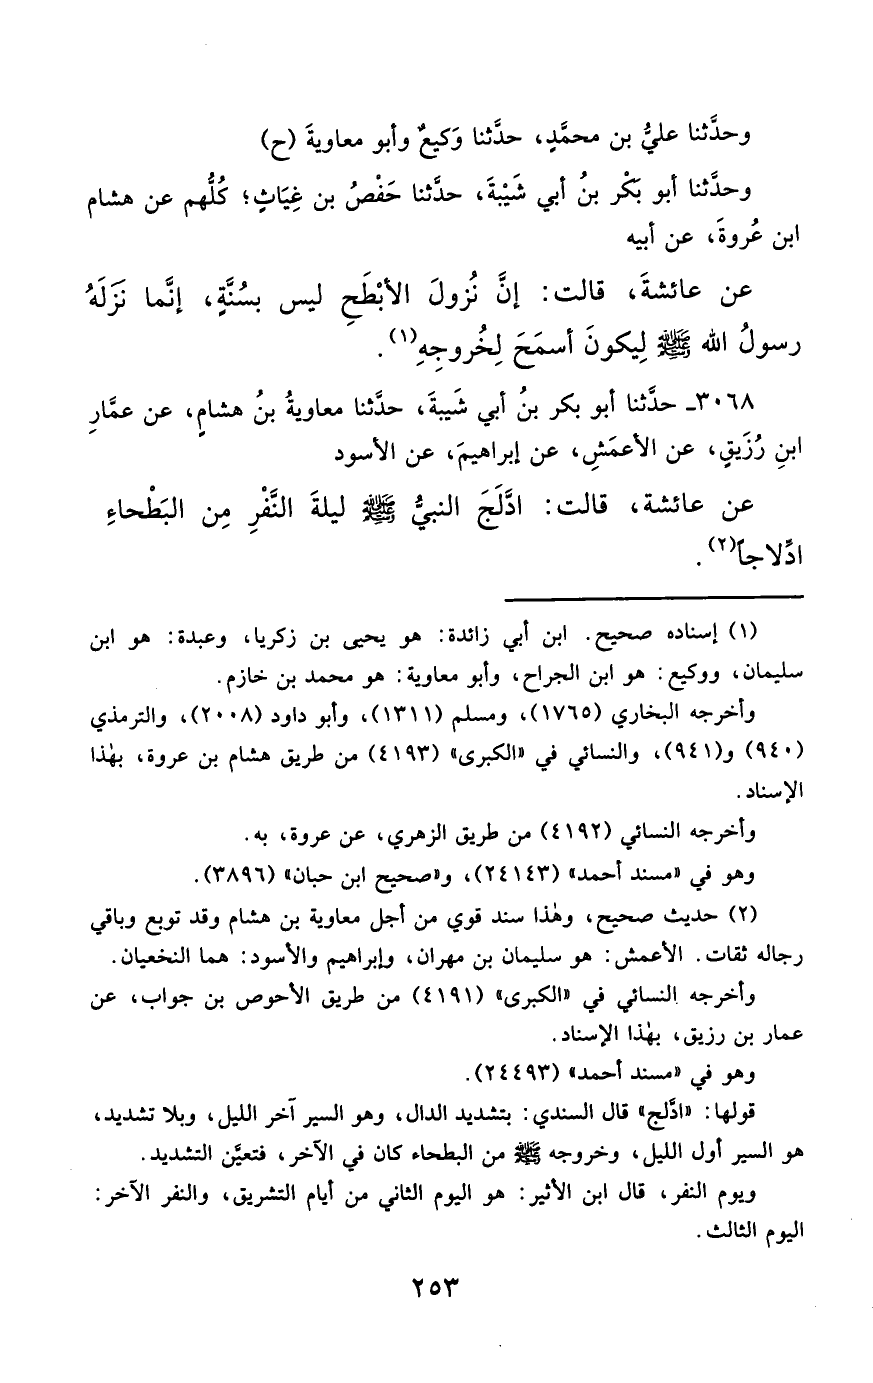 وحدَّثنا عليُّ بن محمَّدٍ، حدَّثنا وَكيعٌ وأبو معاويةَ (ح)
وحدَّثنا أبو بَكْر بنُ أبي شَيْبةَ، حدَّثنا حَفْصُ بن غِيَاثٍ؛ كُلُّهم عن هشام
ابن عُروةَ، عن أبيه
عن عائشةَ، قالت: إنَّ نُزولَ الأبْطَحِ ليس بسُنَّةٍ، إنَّما نَزَلَهُ
رسولُ الله ﷺ لِيكونَ أسمَحَ لِخُروجِهِ(١).
٣٠٦٨ـ حدَّثنا أبو بكر بنُ أبي شَيبةَ، حدَّثنا معاويةُ بنُ هشامٍ، عن عمَّارِ
ابنِ رُزَيقٍ، عن الأعمَشِ، عن إبراهيمَ، عن الأسود
عن عائشة، قالت: ادَّلَجَ النبيُّ ﷺ ليلةَ النَّفْرِ مِن البَطْحاءِ
ادِّلاجاً(٢).
(١) إسناده صحيح. ابن أبي زائدة: هو يحيى بن زكريا، وعبدة: هو ابن
سليمان، ووكيع: هو ابن الجراح، وأبو معاوية: هو محمد بن خازم.
وأخرجه البخاري (١٧٦٥)، ومسلم (١٣١١)، وأبو داود (٢٠٠٨)، والترمذي
(٩٤٠) و(٩٤١)، والنسائي في «الكبرى» (٤١٩٣) من طريق هشام بن عروة، بهٰذا
الإسناد.
وأخرجه النسائي (٤١٩٢) من طريق الزهري، عن عروة، به.
وهو في «مسند أحمد» (٢٤١٤٣)، و«صحيح ابن حبان» (٣٨٩٦).
(٢) حديث صحيح، وهٰذا سند قوي من أجل معاوية بن هشام وقد توبع وباقي
رجاله ثقات. الأعمش: هو سليمان بن مهران، وإبراهيم والأسود: هما النخعيان.
وأخرجه النسائي في «الكبرى» (٤١٩١) من طريق الأحوص بن جواب، عن
عمار بن رزيق، بهٰذا الإسناد.
وهو في «مسند أحمد» (٢٤٤٩٣).
قولها: «ادَّلج» قال السندي: بتشديد الدال، وهو السير آخر الليل، وبلا تشديد،
هو السير أول الليل، وخروجه ﷺ من البطحاء كان في الآخر، فتعيَّن التشديد.
ويوم النفر، قال ابن الأثير: هو اليوم الثاني من أيام التشريق، والنفر الآخر:
اليوم الثالث.
٢٥٣